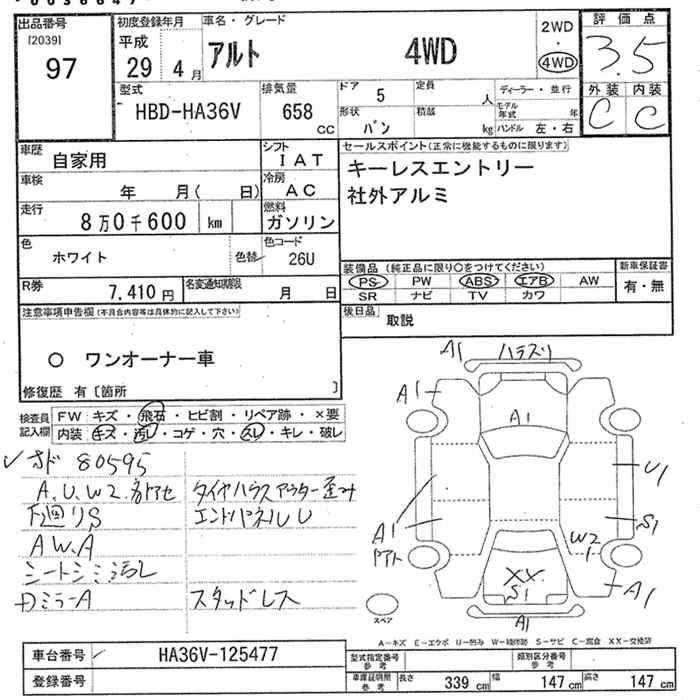 出品番号
[2039]
97
初度登録年月
平成
29 4月
車名・グレード
アルト 4WD
2WD
・
4WD
評価点
3.5
外装 内装
C C
型式
HBD-HA36V
排気量
658
cc
ドア 5
形状
バン
定員
人
積載
kg
ディーラー・並行
モデル年式 年
ハンドル 左・右
車歴
自家用
シフト
IAT
車検
年 月( 日)
冷房
AC
走行
8万0千600 km
燃料
ガソリン
色
ホワイト
色替
色コード
26U
R券
7,410円
名変通知期限
月 日
セールスポイント(正常に機能するものに限ります)
キーレスエントリー
社外アルミ
装備品 (純正品に限り○をつけてください)
PS PW ABS エアB AW
SR ナビ TV カワ
新車保証書
有・無
後日品
取説
注意事項申告欄(不具合内容等は具体的に記入して下さい)
○ ワンオーナー車
修復歴 有〔箇所 〕
検査員
記入欄
FW キズ・飛石・ヒビ割・リペア跡・×要
内装 キズ・汚れ・コゲ・穴・スレ・キレ・破レ
80595
A.U.W2.
下廻りS
A W.A
シートシミ汚レ
ミラーA
タイヤハウスアウター歪み
エンドパネルU
スタッドレス
A1
ハラスリ
A1
A1
U1
A1
S1
W2
XX
S1
A1
A1
スペア
A-キズ E-エクボ U-凹み W-補修跡 S-サビ C-腐食 XX-交換済
車台番号
HA36V-125477
登録番号
型式指定番号
参考
類別区分番号
参考
車庫証明用
参考
長さ 339 cm
幅 147 cm
高さ 147 cm